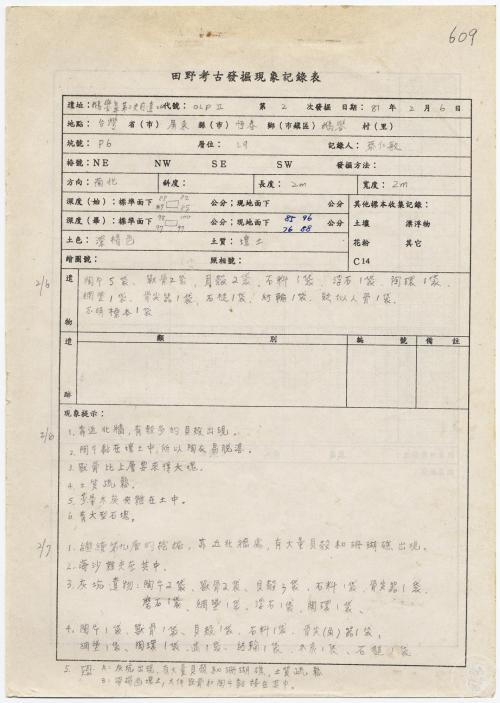 609
田野考古發掘現象記錄表
遺址：鵝鑾鼻第二史前遺址 代號：OLP II 第 2 次發掘 日期：81 年 2 月 6 日
地點：台灣 省（市）屏東 縣（市）恆春 鄉（市鎮區）鵝鑾 村（里）
坑號：P6 層位：L9 記錄人：
格號：NE NW SE SW 發掘方法：
方向：南北 斜度： 長度：2m 寬度：2m
深度（始）：標準面下 公分；現地面下 公分 其他標本收集記錄：
深度（畢）：標準面下 公分；現地面下 85 96 76 88 公分 土壤 漂浮物
土色：深褐色 土質：壤土 花粉 其它
繪圖號： 照相號： C14
2/6
遺物
陶片5袋、獸骨2袋、貝殼2袋、石料1袋、浮石1袋、陶環1袋、
網墜1袋、骨尖器1袋、石錛1袋、紡輪1袋、疑似人骨1袋、
不明標本1袋
遺跡
類別 編號 備註
現象提示：
2/6
1. 靠近北牆，有較多的貝殼出現。
2. 陶片黏在壤土中，所以陶衣易脫落。
3. 獸骨比上層要來得大塊。
4. 土質疏鬆
5. 木炭夾雜在土中。
6. 有大型石塊。
2/7
1. 繼續第九層的挖掘，靠近北牆處，有大量貝殼和珊瑚礁出現。
2. 海沙夾在其中。
3. 灰坑遺物：陶片2袋、獸骨2袋、貝殼3袋、石料1袋、骨尖器1袋、
磨石1袋、網墜1袋、浮石1袋、陶環1袋、
4. 陶片1袋、獸骨1袋、貝殼1袋、石料1袋、骨尖（角）器1袋、
網墜1袋、陶環1袋、紡輪1袋、木炭1袋、石錛1袋
5. A：灰坑出現，有大量貝殼和珊瑚礁，土質疏鬆
B：壤土，大件獸骨和陶片黏接在其中。